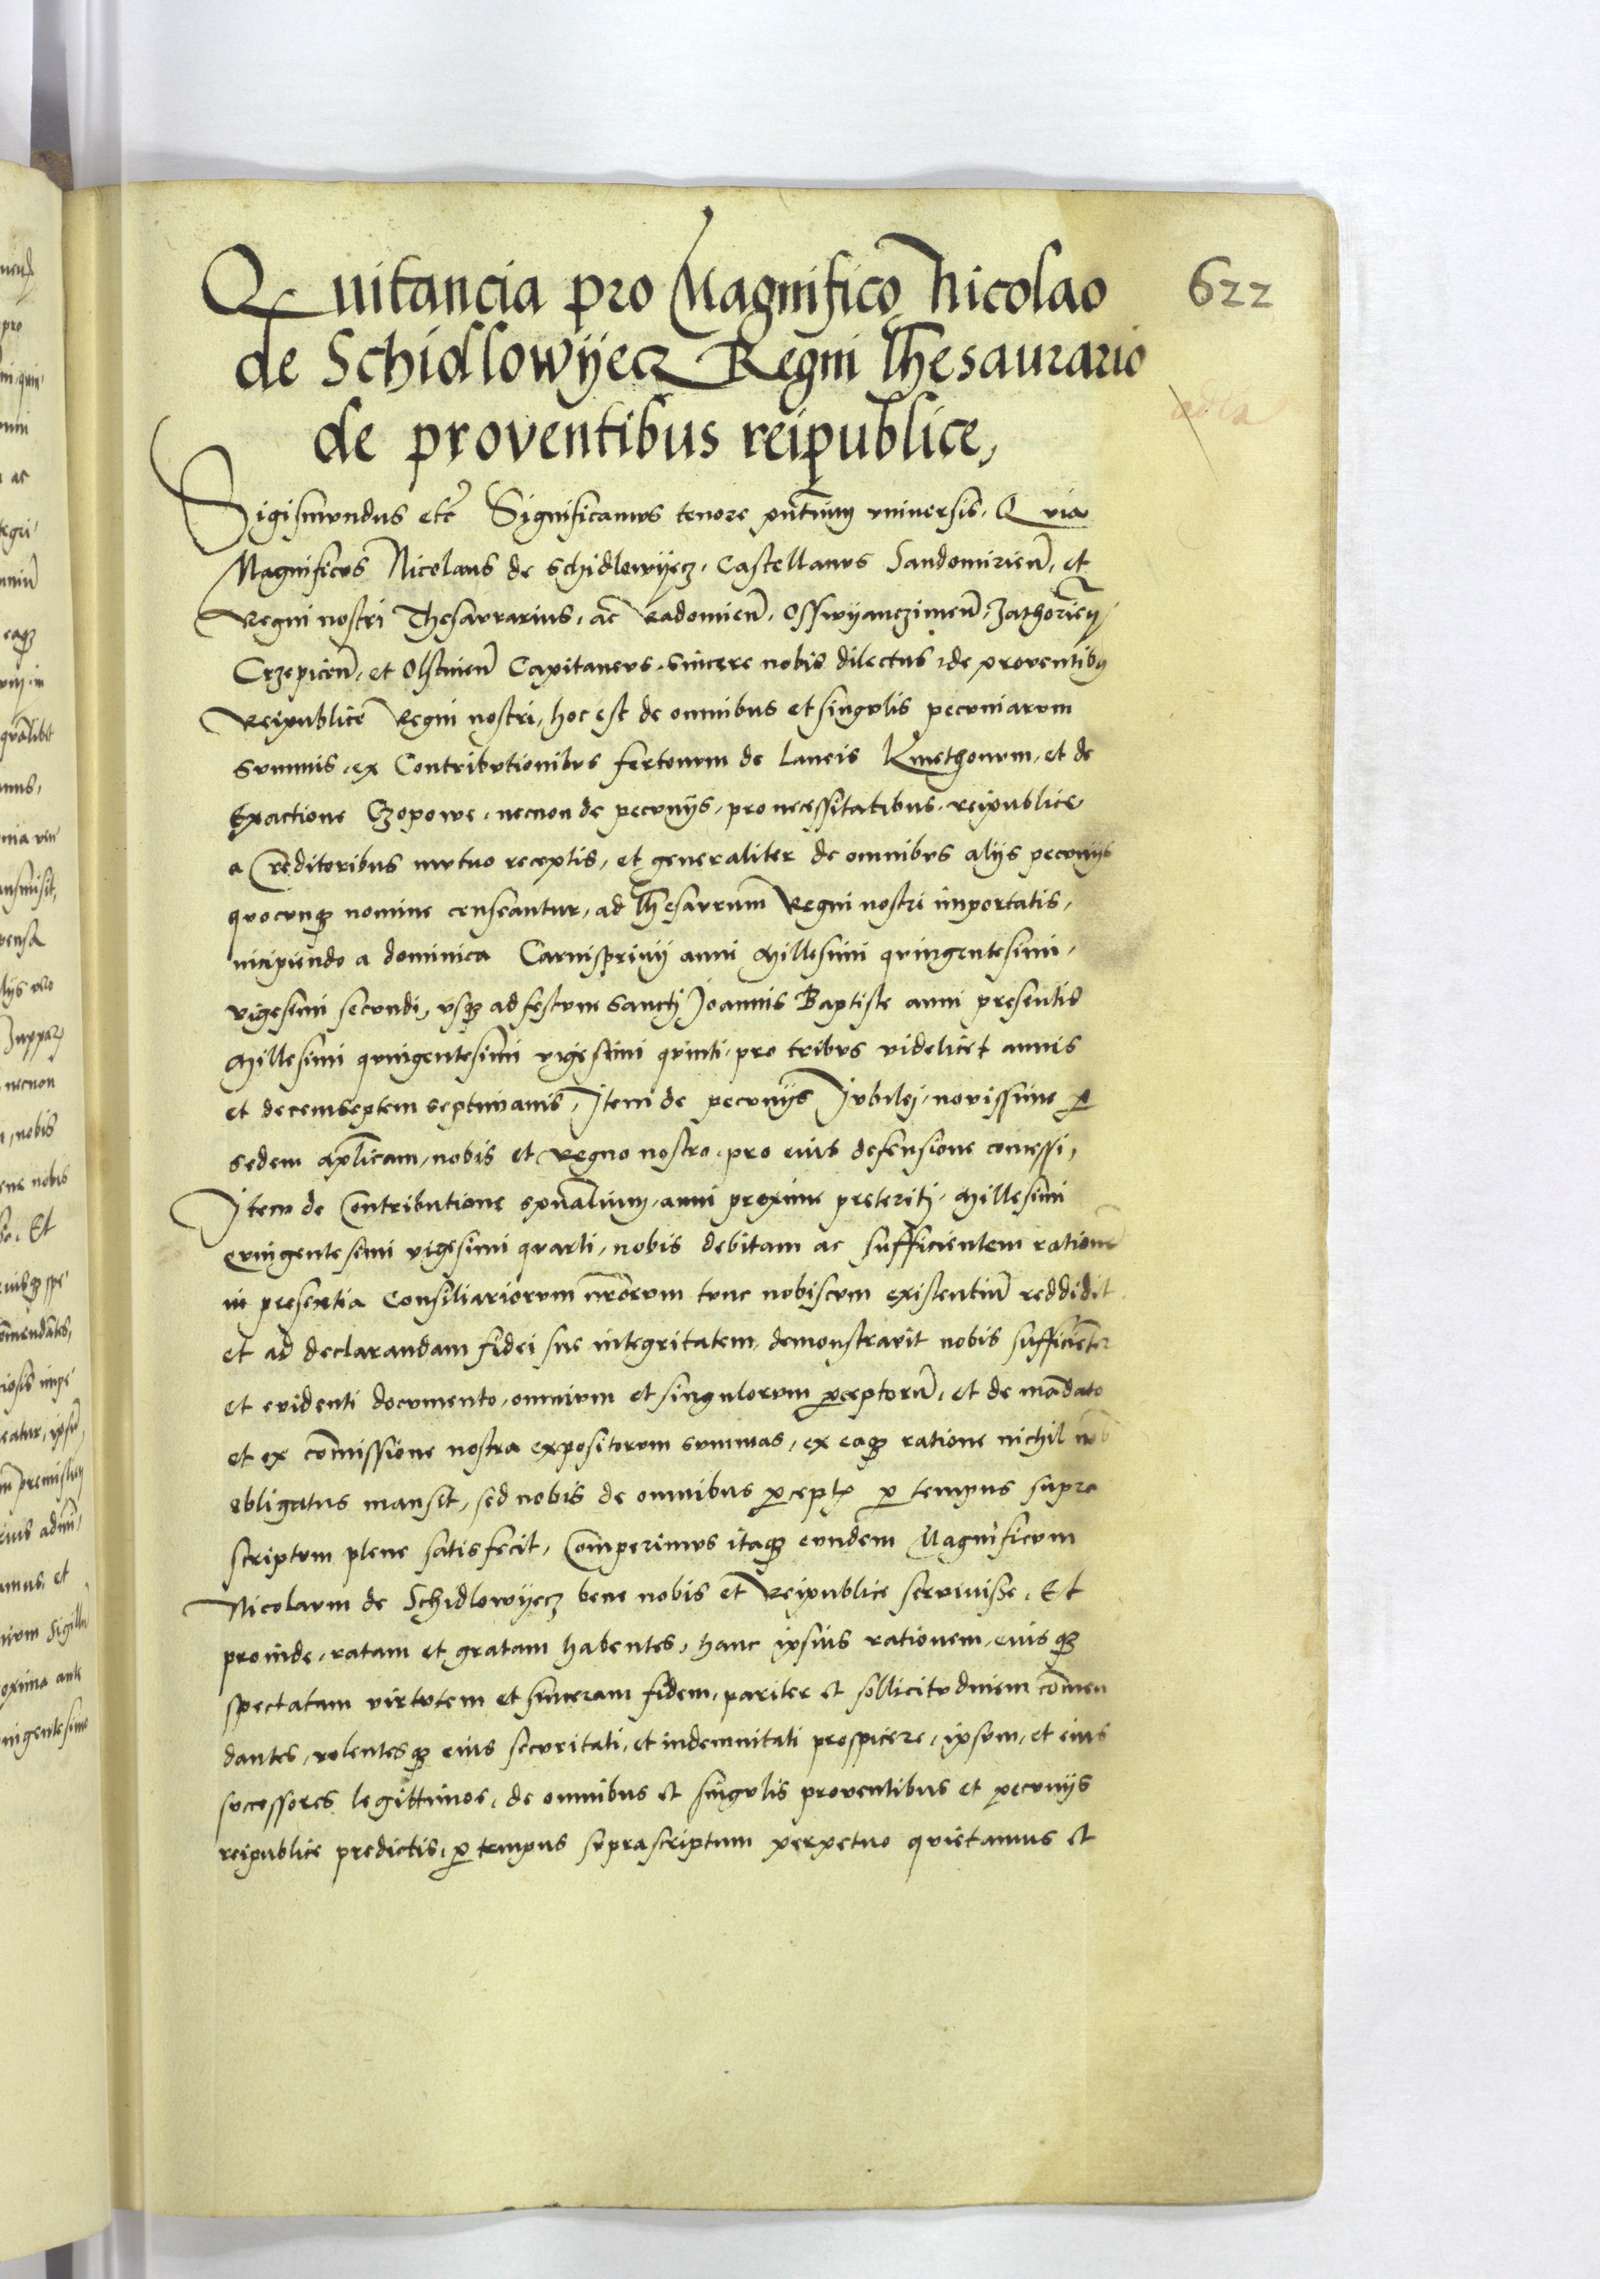 Quitancia pro Magnifico Nicolao
622
de Schidlowyecz Regni Thesaurario
de proventibus reipublice,
Sigismundus etc Significamus tenore pñtium vniversis. Quia
Magnificus Nicolaus de Schidlowyecz, Castellanus Sandomirieñ, et
Regni nostri Thesaurarius, ac Radomieñ, Osswyanczimeñ, Zathorieñ
Crzepiceñ, et Olstineñ Capitaneus, sincere nobis dilectus, de proventibus
Reipublice Regni nostri, hoc est de omnibus et singulis pecuniarum
summis, ex Contributionibus fertonum de laneis Kmethonum, et de
Exactione Czopowe, necnon de pecunijs, pro necessitatibus reipublice
a Creditoribus mutuo receptis, et generaliter de omnibus alijs pecunijs
quocunqȝ nomine censeantur, ad Thesaurum Regni nostri importatis,
incipiendo a dominica Carnisprivij anni Millesimi quingentesimi
vigesimi secundi, vsqȝ ad festum Sancti Joannis Baptiste anni presentis
Millesimi quingentesimi vigesimi quinti, pro tribus videlicet annis
et decemseptem septimanis, Item de pecunijs Jubilej, novissime ꝑ
sedem aplicam, nobis et regno nostro, pro eius defensione concessi,
Item de Contributione spũalium, anni proxime preteriti, Millesimi
quingentesimi vigesimi quarti, nobis debitam ac sufficientem rationẽ
in presentia Consiliariorum nrorum tunc nobiscum existentiũ reddidit
et ad declarandam fidei sue integritatem, demonstravit nobis sufficienter
et evidenti documento, omnium et singulorum ꝑceptorũ, et de mãdato
et ex cõmissione nostra expositorum summas, ex eaqȝ ratione nichil nob
obligatus mansit, sed nobis de omnibus ꝑceptis ꝑ tempus supra
scriptum plene satisfecit, Comperimus itaqȝ eundem Magnificum
Nicolaum de Schidlowyecz bene nobis et Reipublice servivisse. Et
proinde, ratam et gratam habentes, hanc ipsius rationem, eiusqȝ
spectatam virtutem et sinceram fidem, pariter et sollicitudinem cõmen
dantes, volentesqȝ eius securitati, et indemnitati prospicere, ipsum, et eius
successores legittimos, de omnibus et singulis proventibus et pecunijs
reipublice predictis, ꝑ tempus suprascriptum perpetuo quietamus et